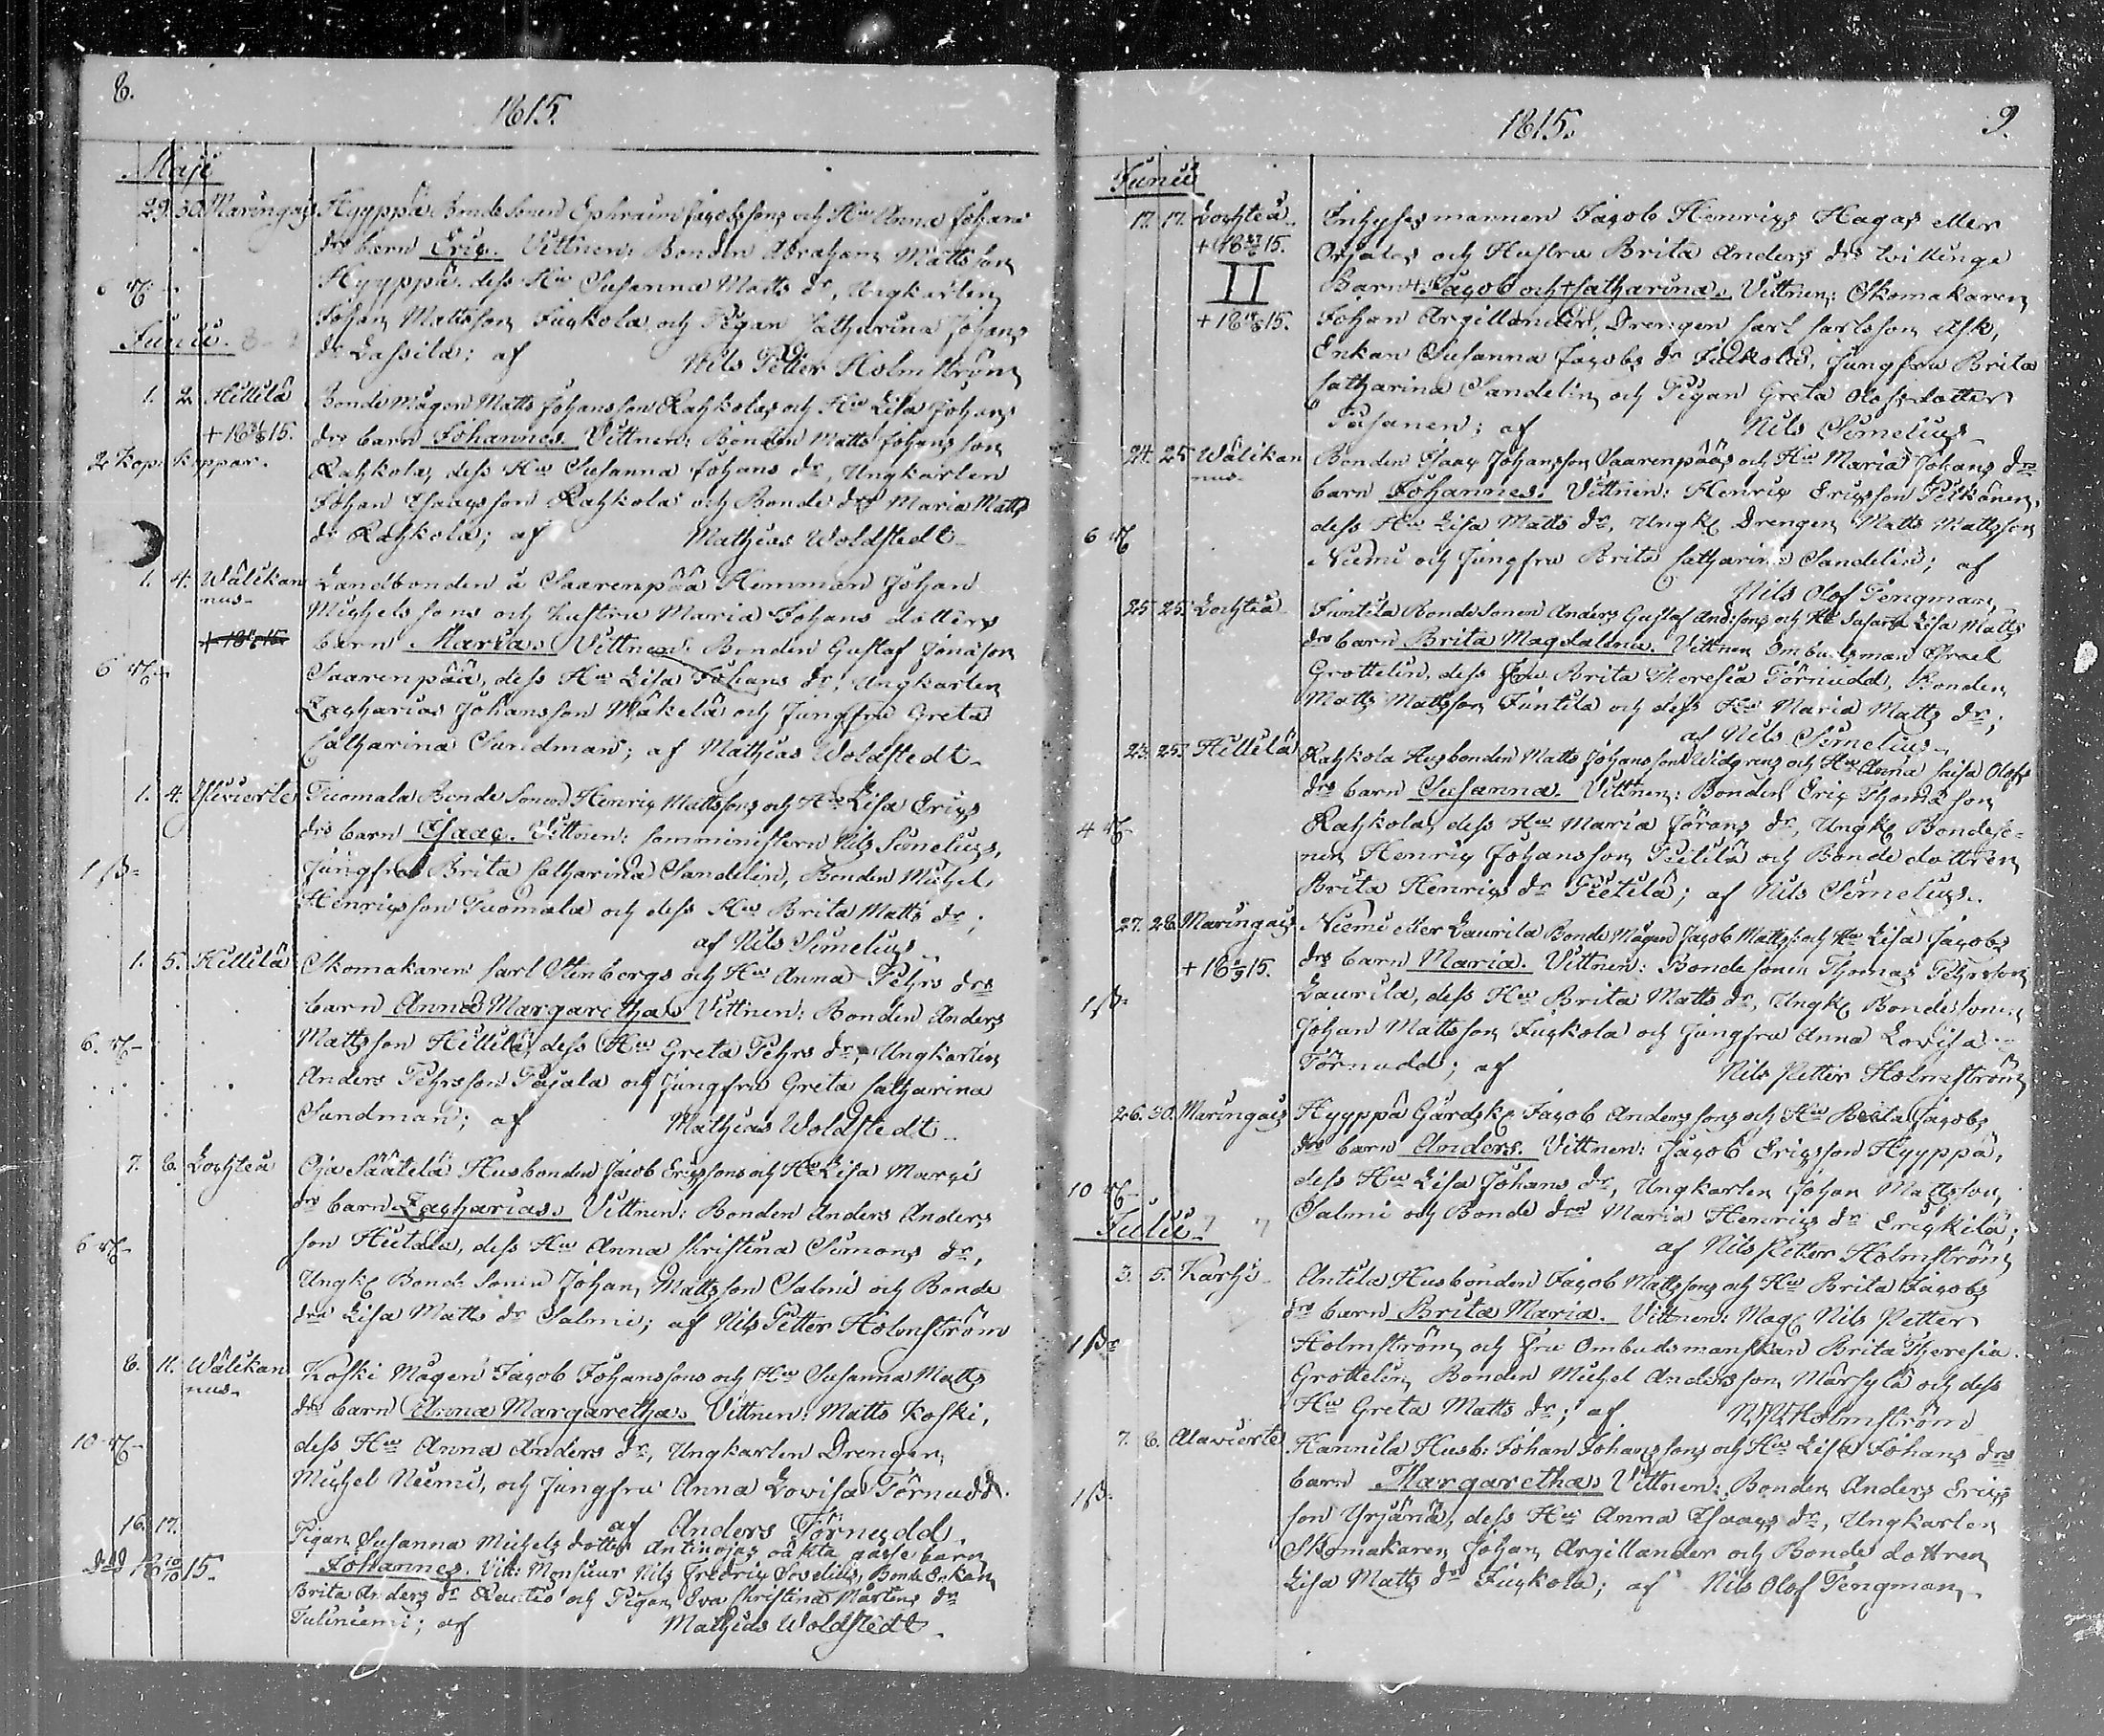 8.
1815.
Maji
29. 30. Maringais Hyyppä Bonde Sonen Ephraim Jacobssons och Hu Anna Johans
drs barn Eric. Vittnen: Bonden Abraham Mattsson
Hyyppä dess Hu Susanna Matts dr, Ungkarlen
Johan Mattsson Juckola och Pigan Catharina Johans
dr Lassila; af Nils Petter Holmström
Junii.
1. 2. Hillilä Bonde Mågen Matts Johansson Rahkolas och Hu Lisa Johans
drs barn Johannes. Vittnen: Bonden Matts Johansson
2 Kop. koppar.
Rahkola, dess Hu Susanna Johans dr, Ungkarlen
Johan Isaacsson Rahkola och Bonde dr Maria Matts
dr Rahkola; af Mathias Woldstedt
1. 4. Wälikannus Landbonden å Saarenpää Hemman Johan
Michelssons och hustru Maria Johans dotters
barn Maria. Vittnen: Bonden Gustaf Jonasson
Saarenpää, dess Hu Lisa Johans dr, Ungkarlen
Zacharias Johansson Mäkelä och Jungfru Greta
Catharina Sundman; af Mathias Woldstedt
1. 4. Yliwierte Tuomala Bonde Sonen Henric Mattssons och Hu Lisa Erics
drs barn Isaac. Vittnen: Comministern Nils Simelius,
Jungfru Brita Catharina Sandelin, Bonden Michel
Henricsson Tuomala och dess Hu Brita Matts dr;
af Nils Simelius
1. 5. Hillilä Skomakaren Carl Stenbergs och Hu Anna Pehrs drs
barn Anna Margaretha. Vittnen: Bonden Anders
Mattsson Hillilä, dess Hu Greta Pehrs dr, Ungkarlen
Anders Pehrsson Pajala och Jungfru Greta Catharina
Sundman; af Mathias Woldstedt
7. 8. Lochteå Oja Säätelä Husbonden Jacob Ericssons och Hu Lisa
drs barn Zacharias. Vittnen: Bonden Anders Anders
son Hietala, dess Hu Anna Christina Simons dr,
Ungk Bonde Sonen Johan Mattsson Salmi och Bonde
drn Lisa Matts dr Salmi; af Nils Petter Holmström
8. 11. Wälikannus Koski Mågen Jacob Johanssons och Hu Susanna Matts
drs barn Anna Margaretha. Vittnen: Matts Koski,
dess Hu Anna Anders dr, Ungkarlen Drengen
Michel Niemi, och Jungfru Anna Lovisa Törnudd.
af Anders Törnudd.
16. 17. Pigan Susanna Michels dotter Antinojas oäkta gosse barn
Johannes. Vitt: Monsieur Nils Fredric Bonde Enkan
Brita Anders dr Rautio och Pigan Eva Christina Mårtens dr
Tuliniemi; af Mathias Woldstedt
1815.
9.
Junii
17. 17. Lochteå Inhysesmannen Jacob Henrics Hagas eller
Orjalas och Hustru Brita Anders drs tvillinge
II
Barn Jacob och Catharina. Vittnen: Skomakaren
Johan Argillander, Drengen Carl Carlsson Ask,
Enkan Susanna Jacobs dr Juckola, Jungfru Brita
Catharina Sandelin och Pigan Greta Olofsdotter
Pasanen; af Nils Simelius
24. 25. Wälikannus Bonden Isaac Johansson Saarenpääs och Hu Maria Johans drs
barn Johannes. Vittnen: Henric Ericsson Pitkänen,
dess Hu Lisa Matts dr, Ungk Drengen Matts Mattsson
Niemi och Jungfru Brita Catharina Sandelin; af
Nils Olof Tengman
25. 25. Lochteå Juntila Bonde Sonen Anders Gustaf Anderssons och Hu Lisa Matts
drs barn Brita Magdalena. Vittnen Ombudsman Israel
Grottelin, dess Fru Brita Theresia Törnudd, Bonden
Matts Mattsson Juntila och dess Hu Maria Matts dr;
af Nils Simelius
23. 25. Hillilä Rahkola Husbonden Matts Johansson Widgrens och Hu Anna Caisa Olofs
drs barn Susanna. Vittnen: Bonden Eric Thomasson
Rahkola, dess Hu Maria Jörans dr, Ungk Bondeso-
nen Henric Johansson Pietilä och Bonde dottren
Brita Henrics dr Pietilä; af Nils Simelius.
27. 28. Maringais Niemi eller Laurila Bonde Mågen Jacob Mattss: och Hu Lisa Jacobs
drs barn Maria. Vittnen: Bonde sonen Thomas Pehrsson
Laurila, dess Hu Brita Matts dr, Ungk Bondesonen
Johan Mattsson Juckola och Jungfru Anna Lovisa
Törnudd; af Nils Petter Holmström
26. 30. Maringais Hyyppä Gårdsk Jacob Anderssons och Hu Brita Jacobs
drs barn Anders. Vittnen: Jacob Ericsson Hyyppä,
dess Hu Lisa Johans dr, Ungkarlen Johan Mattsson
Salmi och Bonde drn Maria Henrics dr Erickilä;
af Nils Petter Holmström
Julii
3. 5. Karhi Antila Husbonden Jacob Mattssons och Hu Brita Jacobs
drs barn Brita Maria. Vittnen: Mag Nils Petter
Holmström och Fru Ombudsmanskan Brita Theresia
Grottelin, Bonden Michel Andersson Märsylä och dess
Hu Greta Matts dr; af N. P. Holmström
7. 8. Alavierte Hannila Husb: Johan Johanssons och Hu Lisa Johans drs
barn Margaretha. Vittnen: Bonden Anders Erics
son Yrjänä, dess Hu Anna Isaacs dr, Ungkarlen
Skomakaren Johan Argillander och Bonde dottren
Lisa Matts dr Juckola; af Nils Olof Tengman